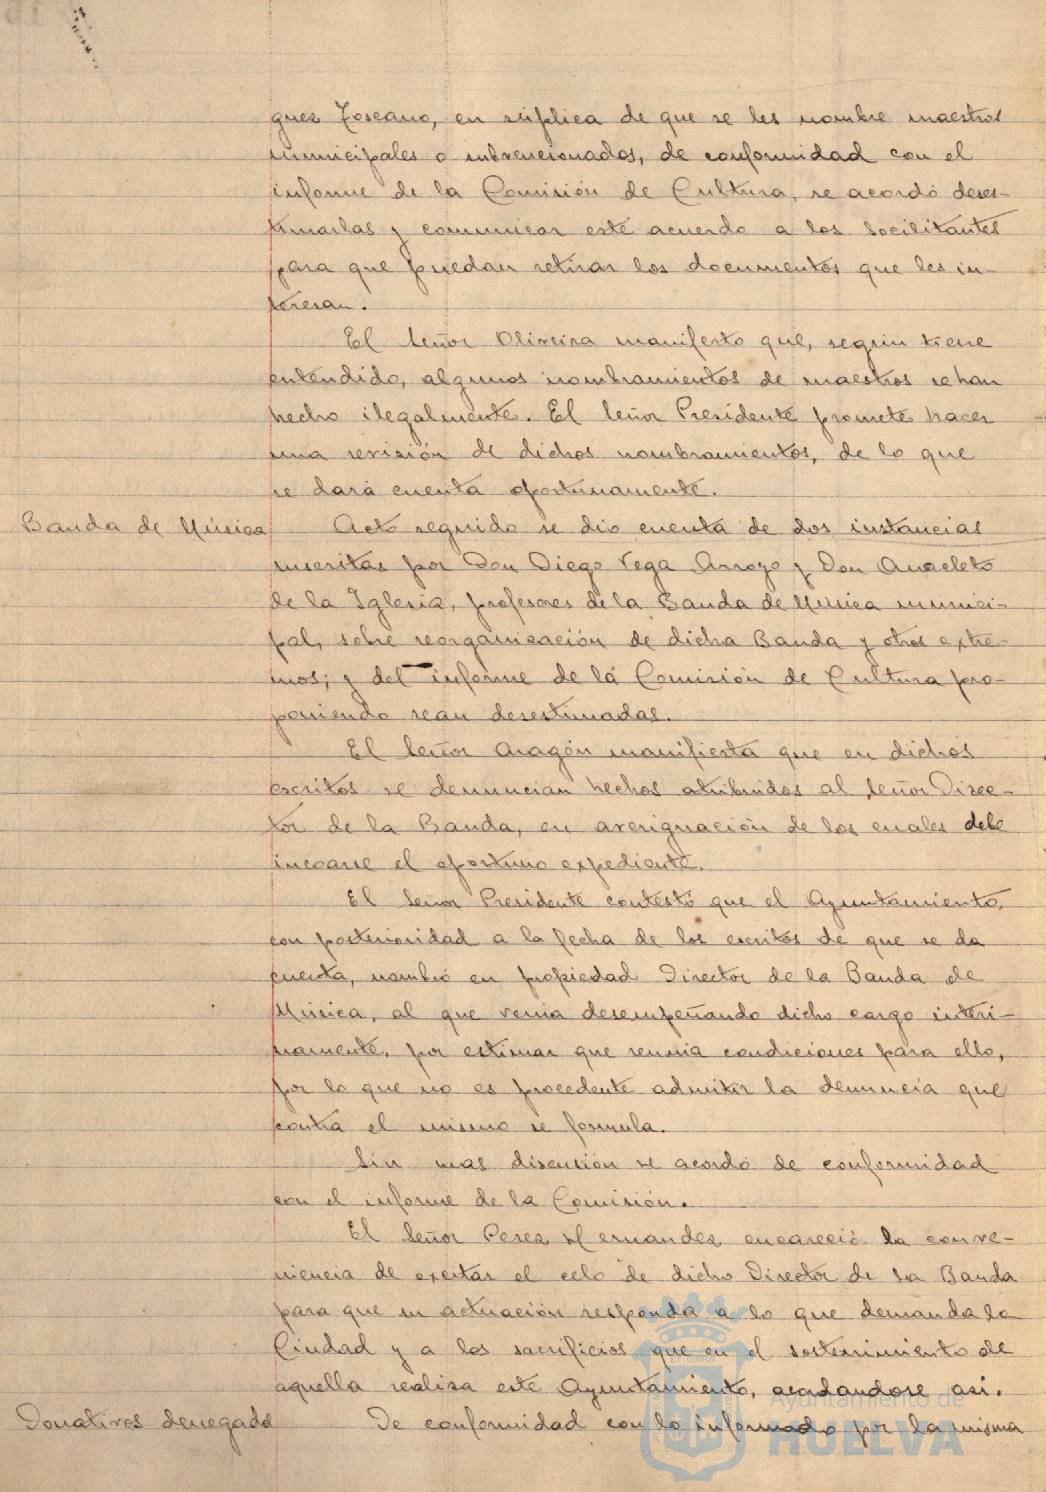 guez Toscano, en súplica de que se les nombre maestros
municipales o subvencionados, de conformidad con el
informe de la Comisión de Cultura, se acordó deses-
timarlas y comunicar este acuerdo a los socilitantes
para que puedan retirar los documentos que les in-
teresan.
El Señor Oliveira manifesto que, según tiene
entendido, algunos nombramientos de maestros se han
hecho ilegalmente. El Señor Presidente promete hacer
una revisión de dichos nombramientos, de lo que
se dará cuenta oportunamente.
Banda de Música Acto seguido se dio cuenta de dos instancias
suscritas por Don Diego Vega Arroyo y Don Anacleto
de la Iglesia, profesores de la Banda de Música munici-
pal, sobre reorganización de dicha Banda y otros extre-
mos; y del informe de la Comisión de Cultura pro-
poniendo sean desestimadas.
El Señor Aragón manifiesta que en dichos
escritos se denuncian hechos atribuidos al Señor Direc-
tor de la Banda, en averiguación de los cuales debe
incoarse el oportuno expediente.
El Señor Presidente contestó que el Ayuntamiento,
con posterioridad a la fecha de los escritos de que se da
cuenta, nombró en propiedad Director de la Banda de
Música, al que venia desempeñando dicho cargo interi-
namente, por estimar que reunia condiciones para ello,
por lo que no es procedente admitir la denuncia que
contra el mismo se formula.
Sin mas discusión se acordó de conformidad
con el informe de la Comisión.
El Señor Perez Hernandez encareció la conve-
niencia de excitar el celo de dicho Director de la Banda
para que su actuación responda a lo que demanda la
Ciudad y a los sacrificios que en el sostenimiento de
aquella realiza este Ayuntamiento, acordandose asi.
Donativos denegados De conformidad con lo informado por la misma
Ayuntamiento de
HUELVA